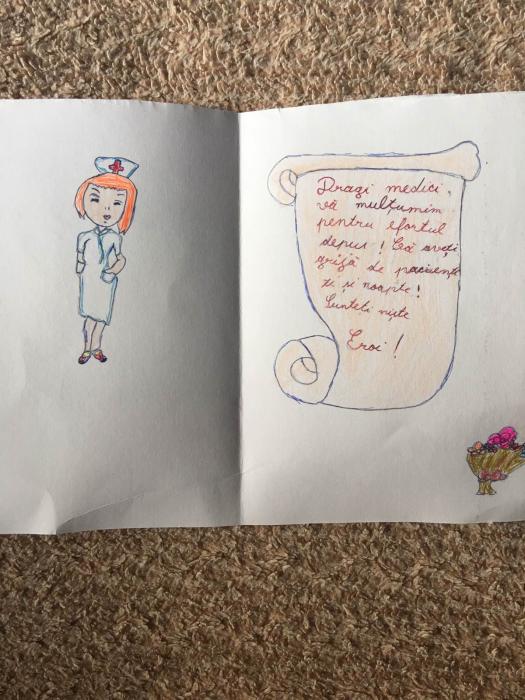 Dragi medici,
vă mulțumim
pentru efortul
depus! Că aveți
grijă de paciente
zi și noapte!
Sunteti niște
Eroi!